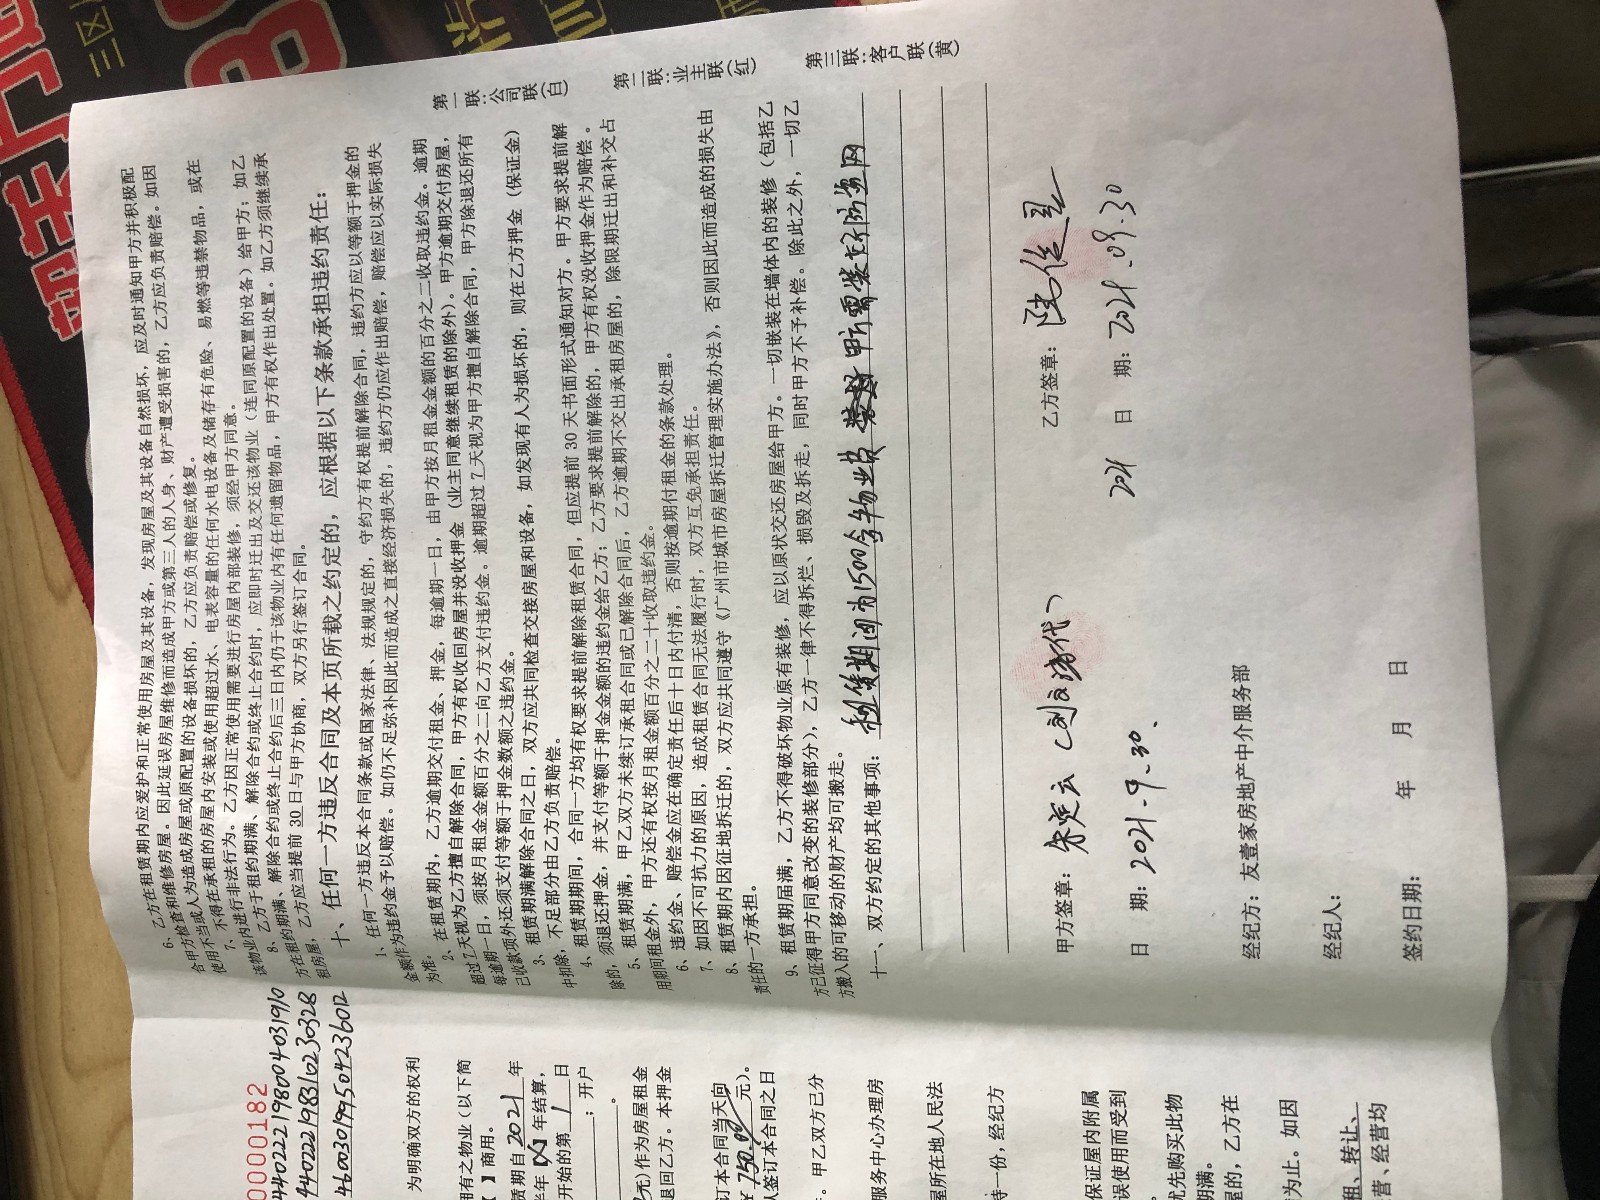 6、乙方在租赁期内应爱护和正常使用房屋及其设备，发现房屋及其设备自然损坏，应及时通知甲方并积极配
合甲方检查和维修房屋。因此延误房屋维修而造成甲方或第三人的人身、财产遭受损害的，乙方应负责赔偿。如因
使用不当或人为造成房屋或原配置的设备损坏的，乙方应负责赔偿或修复。
7、不得在承租的房屋内安装或使用超过水、电表容量的任何水电设备及储存有危险、易燃等违禁物品，或在
该物业内进行非法行为。乙方因正常使用需要进行房屋内部装修，须经甲方同意。
8、乙方于租约期满、解除合约或终止合约时，应即时迁出及交还该物业（连同原配置的设备）给甲方；如乙
方在租约期满、解除合约或终止合约后三日内仍于该物业内有任何遗留物品，甲方有权作出处置。如乙方须继续承
租房屋，乙方应当提前 30 日与甲方协商，双方另行签订合同。
十、任何一方违反合同及本页所载之约定的，应根据以下条款承担违约责任：
1、任何一方违反本合同条款或国家法律、法规规定的，守约方有权提前解除合同，违约方应以等额于押金的
金额作为违约金予以赔偿。如仍不足弥补因此而造成之直接经济损失的，违约方仍应作出赔偿，赔偿应以实际损失
为准。
2、在租赁期内，乙方逾期交付租金、押金，每逾期一日，由甲方按月租金金额的百分之二收取违约金。逾期
超过 7 天视为乙方擅自解除合同，甲方有权收回房屋并没收押金（业主同意继续租赁的除外）。甲方逾期交付房屋，
每逾期一日，须按月租金金额百分之二向乙方支付违约金。逾期超过 7 天视为甲方擅自解除合同，甲方除退还所有
己收款项外还须支付等额于押金数额之违约金。
3、租赁期满解除合同之日，双方应共同检查交接房屋和设备，如发现有人为损坏的，则在乙方押金（保证金）
中扣除，不足部分由乙方负责赔偿。
4、租赁期期间，合同一方均有权要求提前解除租赁合同，但应提前 30 天书面形式通知对方。甲方要求提前解
除的，须退还押金，并支付等额于押金金额的违约金给乙方；乙方要求提前解除的，甲方有权没收押金作为赔偿。
5、租赁期满，甲乙双方未续订承租合同或已解除合同后，乙方逾期不交出承租房屋的，除限期迁出和补交占
用期间租金外，甲方还有权按月租金额百分之二十收取违约金。
6、违约金、赔偿金应在确定责任后十日内付清，否则按逾期付租金的条款处理。
7、如因不可抗力的原因，造成租赁合同无法履行时，双方互免承担责任。
8、租赁期内因征地拆迁的，双方应共同遵守《广州市城市房屋拆迁管理实施办法》，否则因此而造成的损失由
责任的一方承担。
9、租赁期届满，乙方不得破坏物业原有装修，应以原状交还房屋给甲方。一切嵌装在墙体内的装修（包括乙
方己征得甲方同意改变的装修部分），乙方一律不得拆烂、损毁及拆走，同时甲方不予补偿。除此之外，一切乙
方搬入的可移动的财产均可搬走。
十一、双方约定的其他事项：租赁期间为1500含物业费 甲方需装好防盗网
甲方签章：
乙方签章：
日 期：2021-9-30
2021 日 期：2021.09.30
经纪方：友壹家房地产中介服务部
经纪人：
签约日期： 年 月 日
第一联：公司联（白）
第二联：业主联（红）
第三联：客户联（黄）
0000182
440222198004031910
440221198310230328
460030199504236012
为明确双方的权利
拥有之物业（以下简
【 】商用。
赁期自2021年
年结算，
开始的第1日
；开户
。
元）作为房屋租金
退回乙方。本押金
订本合同当天向
750.00元）。
签订本合同之日
。甲乙双方已分
服务中心办理房
屋所在地人民法
持一份，经纪方
保证屋内附属
误使用而受到
优先购买此物
期满。
屋的，乙方在
为止。如因
租、转让、
营、经营均